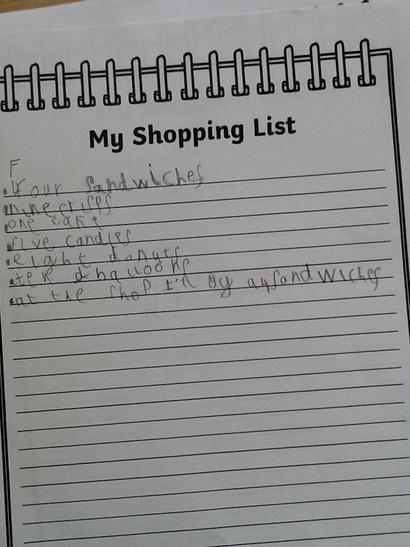 My Shopping List
F
.four sandwiches
.nine crisps
.one cake
.five candles
.eight donuts
.ten
.at the shop I'll by sandwiches